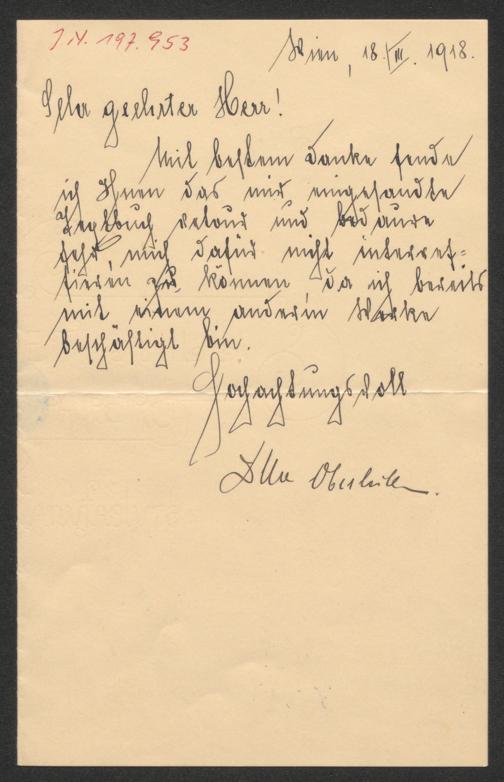 J.N. 197.953
Wien, 18. III. 1918.
Sehr geehrter Herr!
Mit bestem Danke sende
ich Ihnen das mir eingesandte
Textbuch retour und bedaure
sehr, mich dafür nicht interes-
sieren zu können da ich bereits
mit einem anderen Werke
beschäftigt bin.
Hochachtungsvoll